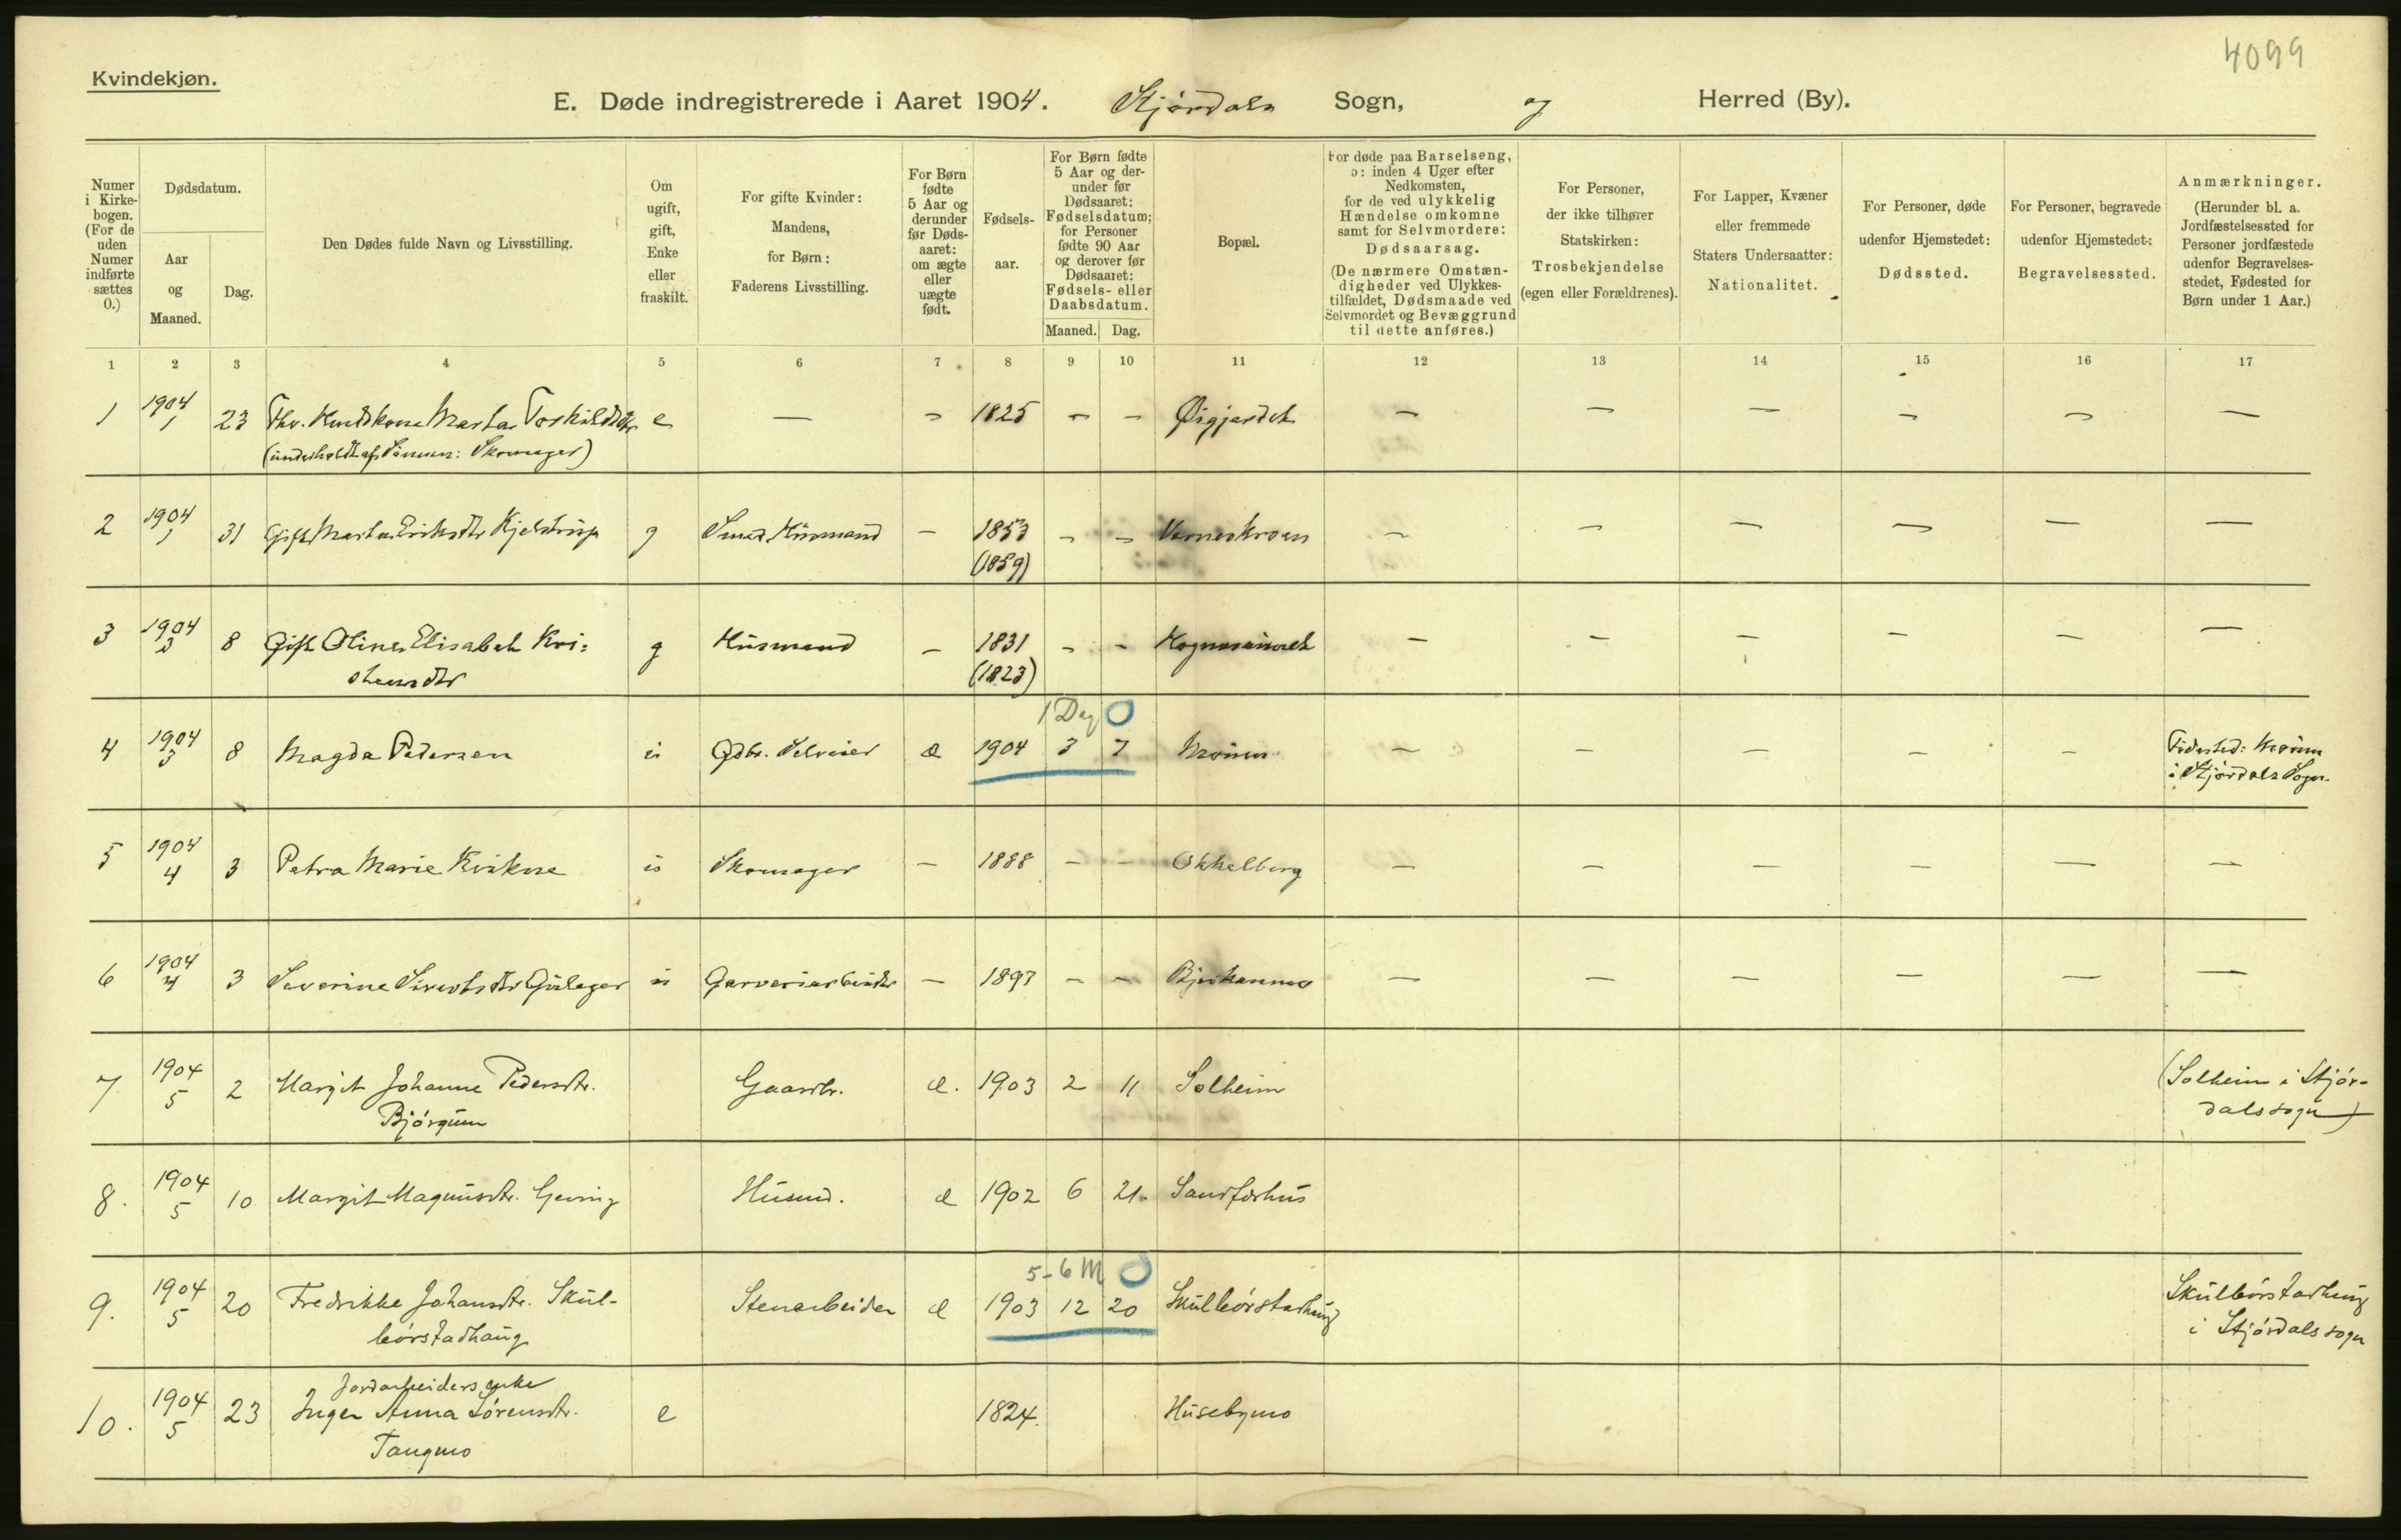 4099
Kvindekjøn.
E. Døde indregistrerede i Aaret 1904. Stjørdals Sogn, og Herred (By).
Numer i Kirkebogen. (For de uden Numer indførte sættes 0.)
Dødsdatum.
Aar og Maaned.
Dag.
Den Dødes fulde Navn og Livsstilling.
Om ugift, gift, Enke eller fraskilt.
For gifte Kvinder: Mandens, for Børn: Faderens Livsstilling.
For Børn fødte 5 Aar og derunder før Dødsaaret: om ægte eller uægte født.
Fødselsaar.
For Børn fødte 5 Aar og derunder før Dødsaaret: Fødselsdatum; for Personer fødte 90 Aar og derover før Dødsaaret: Fødsels- eller Daabsdatum.
Maaned. Dag.
Bopæl.
For døde paa Barselseng, ɔ: inden 4 Uger efter Nedkomsten, for de ved ulykkelig Hændelse omkomne samt for Selvmordere: Dødsaarsag. (De nærmere Omstændigheder ved Ulykkestilfældet, Dødsmaade ved Selvmordet og Bevæggrund til dette anføres.)
For Personer, der ikke tilhører Statskirken: Trosbekjendelse (egen eller Forældrenes).
For Lapper, Kvæner eller fremmede Staters Undersaatter: Nationalitet.
For Personer, døde udenfor Hjemstedet: Dødssted.
For Personer, begravede udenfor Hjemstedet: Begravelsessted.
Anmærkninger. (Herunder bl. a. Jordfæstelsessted for Personer jordfæstede udenfor Begravelsesstedet, Fødested for Børn under 1 Aar.)
1 2 3 4 5 6 7 8 9 10 11 12 13 14 15 16 17
1 1904 1 23 Marta Torkildsdtr e — – 1825 – – Øigjerdet — — — — — —
(underholdt af Sønnen: Skomager)
2 1904 1 31 Gift Marta Eriksdtr Kjelstrup g Smed, Husmand – 1853 – – Værneskroen — — — — — —
(1859)
3 1904 3 8 Gift Oline Elisabet Kri= g Husmand – 1831 – – — — — — — —
stensdtr (1823)
1 Dag 0
4 1904 3 8 Magda Pedersen u Gdbr. Selveier æ 1904 3 7 Moen — — — — — Fødested: Moen
i Stjørdals Sogn.
5 1904 4 3 Petra Marie Kvikne u Skomager – 1888 – – Okkelberg — — — — — —
6 1904 4 3 Severine Sivertsdtr Gulager u Garveriarbeider – 1897 – – — — — — — —
7 1904 5 2 Margit Johanne Pedersdtr. Gaardbr. æ. 1903 2 11 Solheim (Solheim i Stjør-
Bjørgum dals sogn)
8. 1904 5 10 Margit Magnusdtr. Geving Husmd. æ 1902 6 21. Sandforhus
5-6 M 0
9. 1904 5 20 Fredrikke Johansdtr. Skul- Stenarbeider æ 1903 12 20 Skulbørstadhaug Skulbørstadhaug
børstadhaug i Stjørdals sogn
Jordarbeiders enke
10. 1904 5 23 Inger Anna Sørensdtr. e 1824. Husebymo
Tangmo